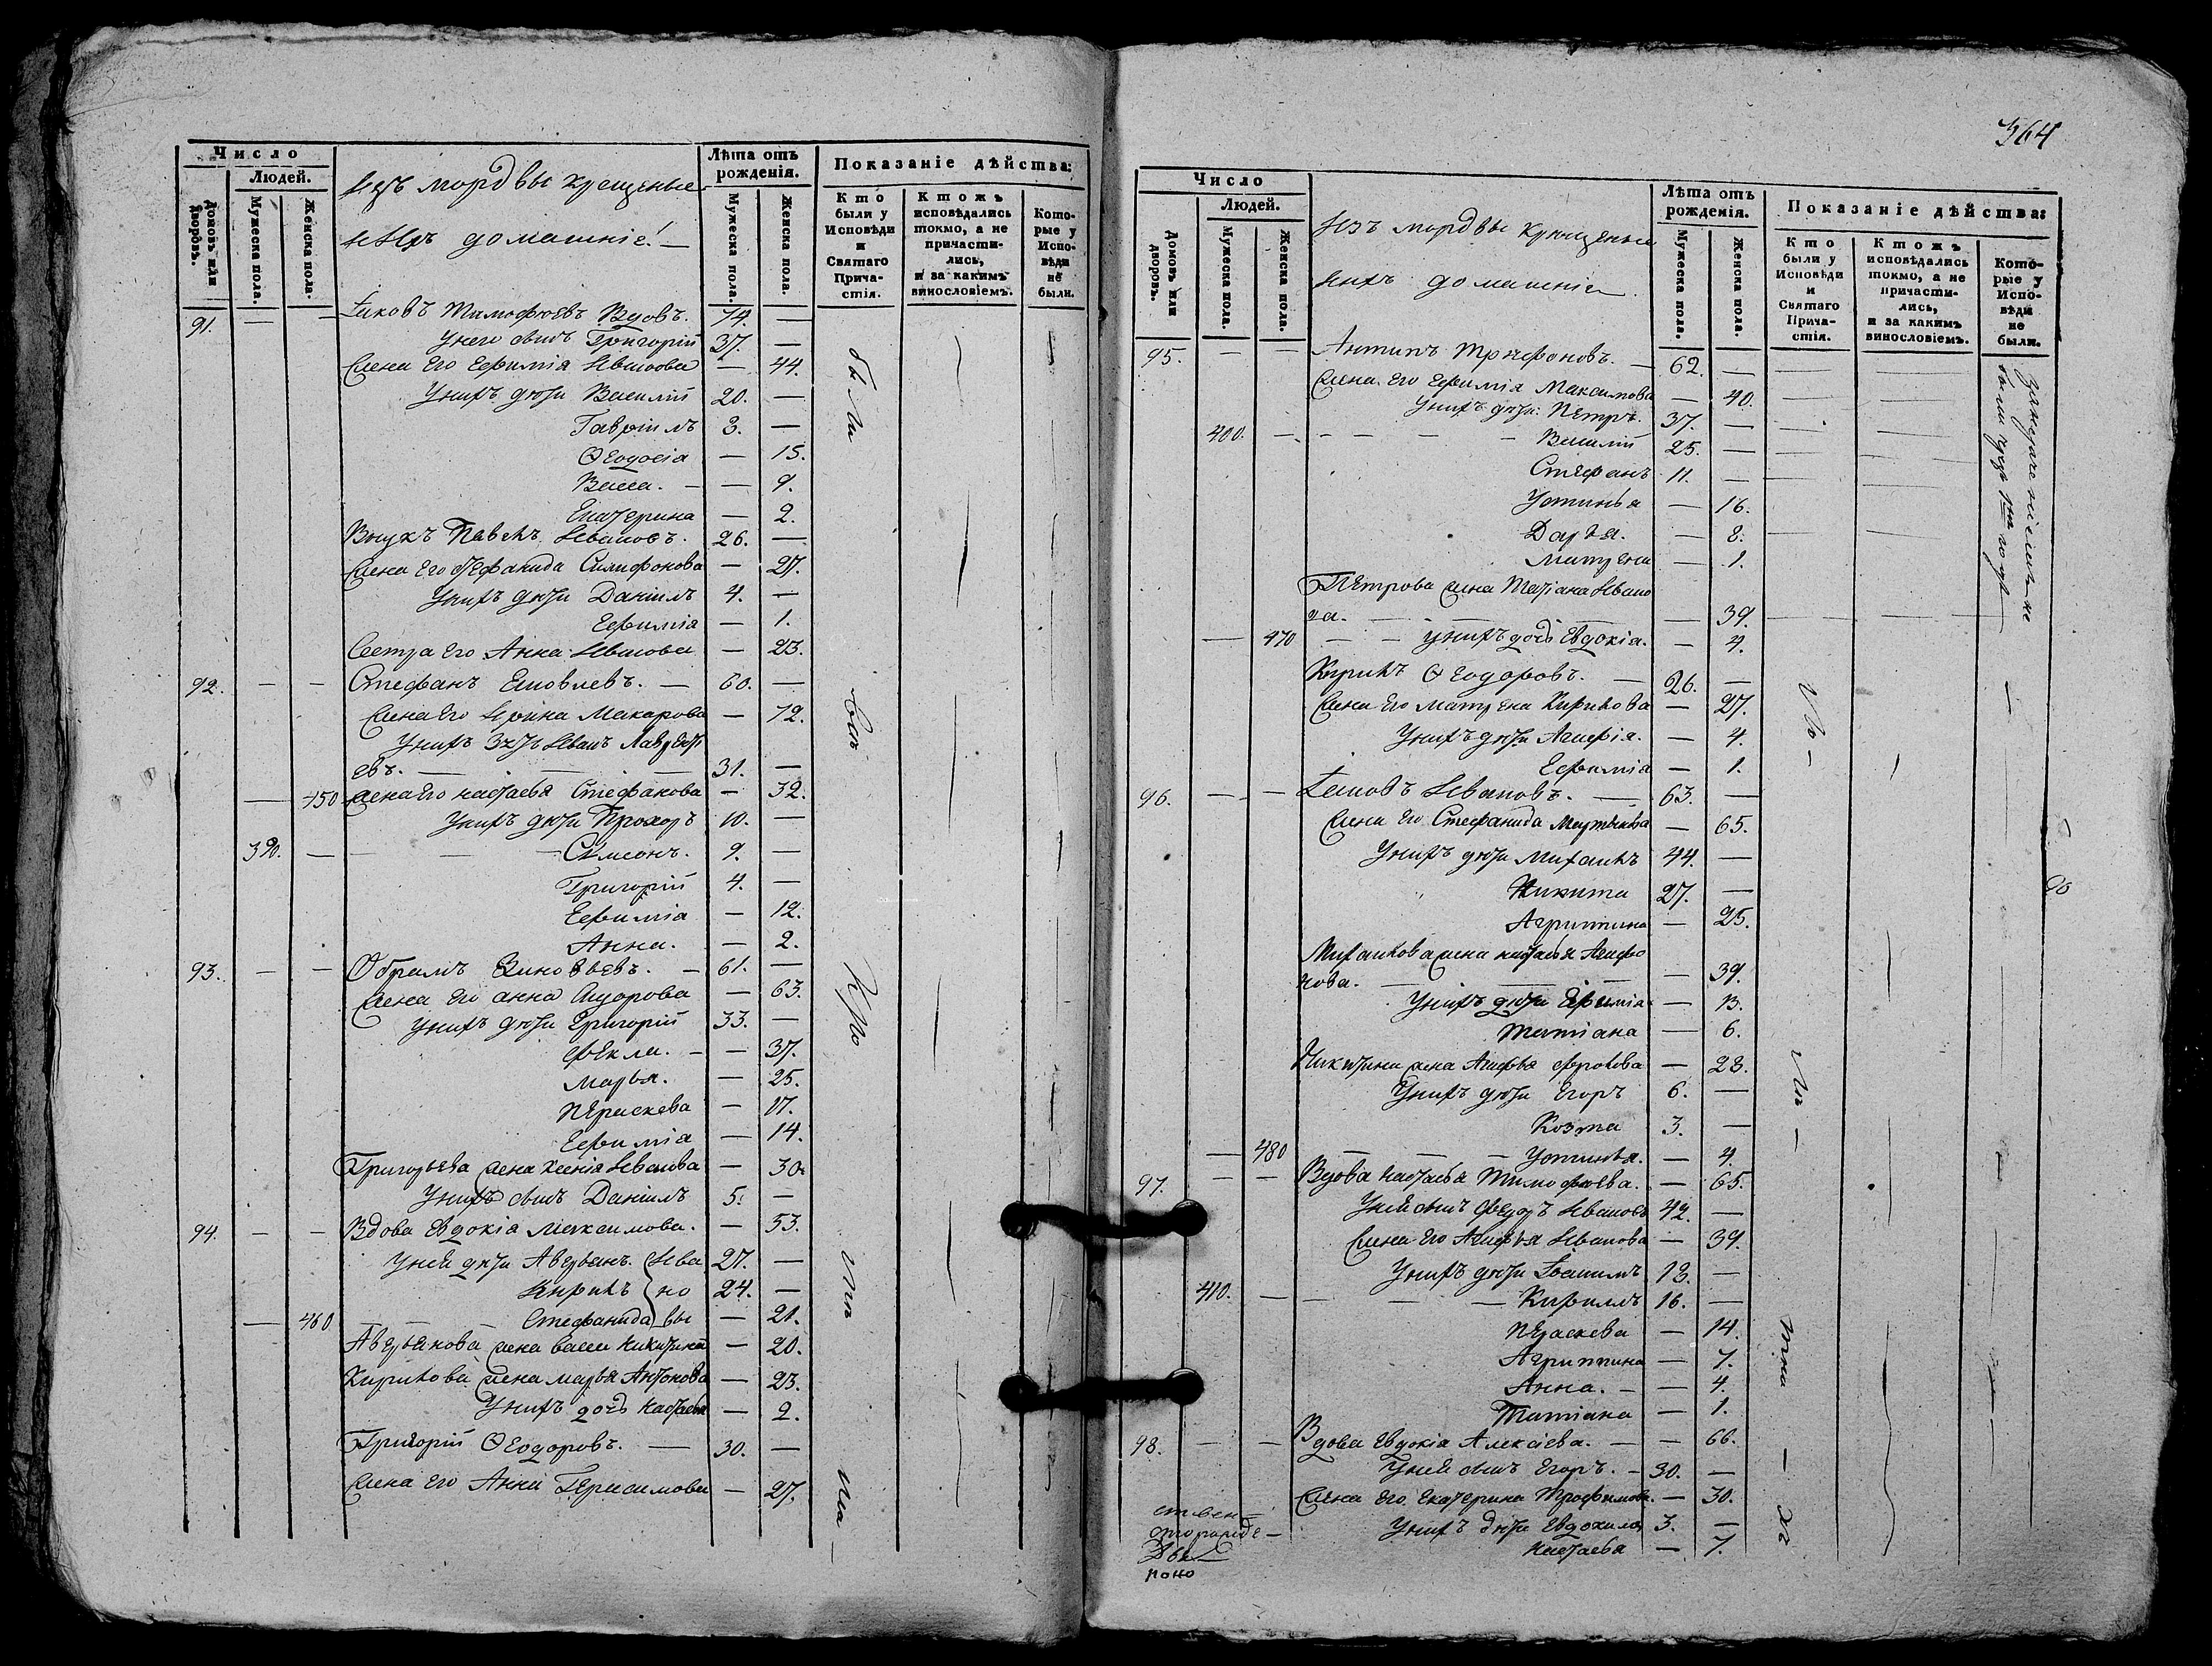 Число
Людей.
Домовъ или дворовъ.
Мужеска пола.
Женска пола.
Изъ мордвы крещеные
и ихъ домашніе:
Лѣта отъ рожденія.
Мужеска пола.
Женска пола.
Показаніе дѣйства:
Кто были у Исповѣди и Святаго Причастія.
Ктожъ исповѣдались токмо, а не причастились, и за какимъ винословіемъ.
Которые у Исповѣди не были.
91. — — Іаковъ Тимофѣевъ Вдовъ. 74. —
У него сынъ Григорій 37. —
Жена его Ефимія Иванова — 44.
У нихъ дѣти Василій 20. —
Гавріилъ 3. —
Ѳеодосія — 15.
Васса. — — 9.
Екатерина — 2.
Внукъ Павелъ Ивановъ. 26. —
Жена его Стефанида — 27.
У нихъ дѣти Даніилъ 4. —
Ефимія — 1.
Сестра его Анна Иванова — 23.
92. — — Стефанъ Яковлевъ. — 60. —
Жена его Ирина Макарова — 72.
У нихъ зять Иванъ Лаврентї
евъ. — — — 31. —
— 450 Жена его настасья Стефанова — 32.
У нихъ дѣти Прохоръ 10. —
390. — — — Симеонъ. 9. —
Григорій 4. —
Ефимія — 12.
Анна. — 2.
93. — — Обрамъ Зиновьевъ. — 61. —
Жена его анна — 63.
У нихъ дѣти Григорій 33. —
Фекла. — — 37.
Марья. — 25.
Параскева — 17.
Ефимія — 14.
Григорьева жена Ксенія Иванова — 30
У нихъ сынъ Даніилъ 5. —
94. — — Вдова Евдокія Максимова. — 53.
У ней дѣти Аверьянъ. Ива 27. —
Кирилъ но 24. —
— 460 — — Стефанида вы — 21.
Аверьянова жена васса никитина — 20.
Кирилова жена марья Антонова — 23.
У нихъ дочь настасья — 2.
Григорій Ѳеодоровъ. — 30. —
Жена его Анна Герасимова — 27.
были
364
Число
Людей.
Домовъ или дворовъ.
Мужеска пола.
Женска пола.
Изъ мордвы крещеные
и ихъ домашніе
Лѣта отъ рожденія.
Мужеска пола.
Женска пола.
Показаніе дѣйства:
Кто были у Исповѣди и Святаго Причастія.
Ктожъ исповѣдались токмо, а не причастились, и за какимъ винословіемъ.
Которые у Исповѣди не были.
95. — — Антипъ Трифоновъ. — 62. —
Жена его Ефимія Максимова — 40.
У нихъ дѣти: Петръ. 37. —
400. — — — — Василій 25. —
Стефанъ 11. —
Устинья — 16.
Дарья. — 8.
Матрена — 1.
Петрова жена Татіана Ивано
ва. — — — — 39.
— 470 — — У нихъ дочь Евдокія. — 4.
Кирилъ Ѳеодоровъ. — 26. —
Жена его Матрена Кирилова — 27.
У нихъ дѣти Агафія. — 4.
Ефимія — 1.
96. — — Іаковъ Ивановъ. — 63. —
Жена его Стефанида Мартынова — 65.
У нихъ дѣти Михаилъ 44. —
Никита 27. —
Агрипина — 25.
Михаилова жена настасья Агафо
нова. — — — — 39.
У нихъ дѣти Ефимія — 13.
Татіана — 6.
Никитина жена Агафья Фролова — 23.
У нихъ дѣти Егоръ 6. —
Козма 3. —
— 480 — — — Устинья. — 4.
97. — — Вдова настасья Тимофѣева. — 65.
У ней сынъ Федоръ Ивановъ 42. —
Жена его Агафья Иванова — 39.
У нихъ дѣти Іоакимъ 13. —
410. — — — — Кирилъ 16. —
Параскева — 14.
Агриппина — 7.
Анна. — — 4.
Татіана — 1.
98. — — Вдова Евдокія Алексіева. — — 66.
У ней сынъ Егоръ. — 30. —
Жена его Екатерина Трофимова. — 30.
У нихъ дѣти Евдокимъ 3. —
Настасья — 7.